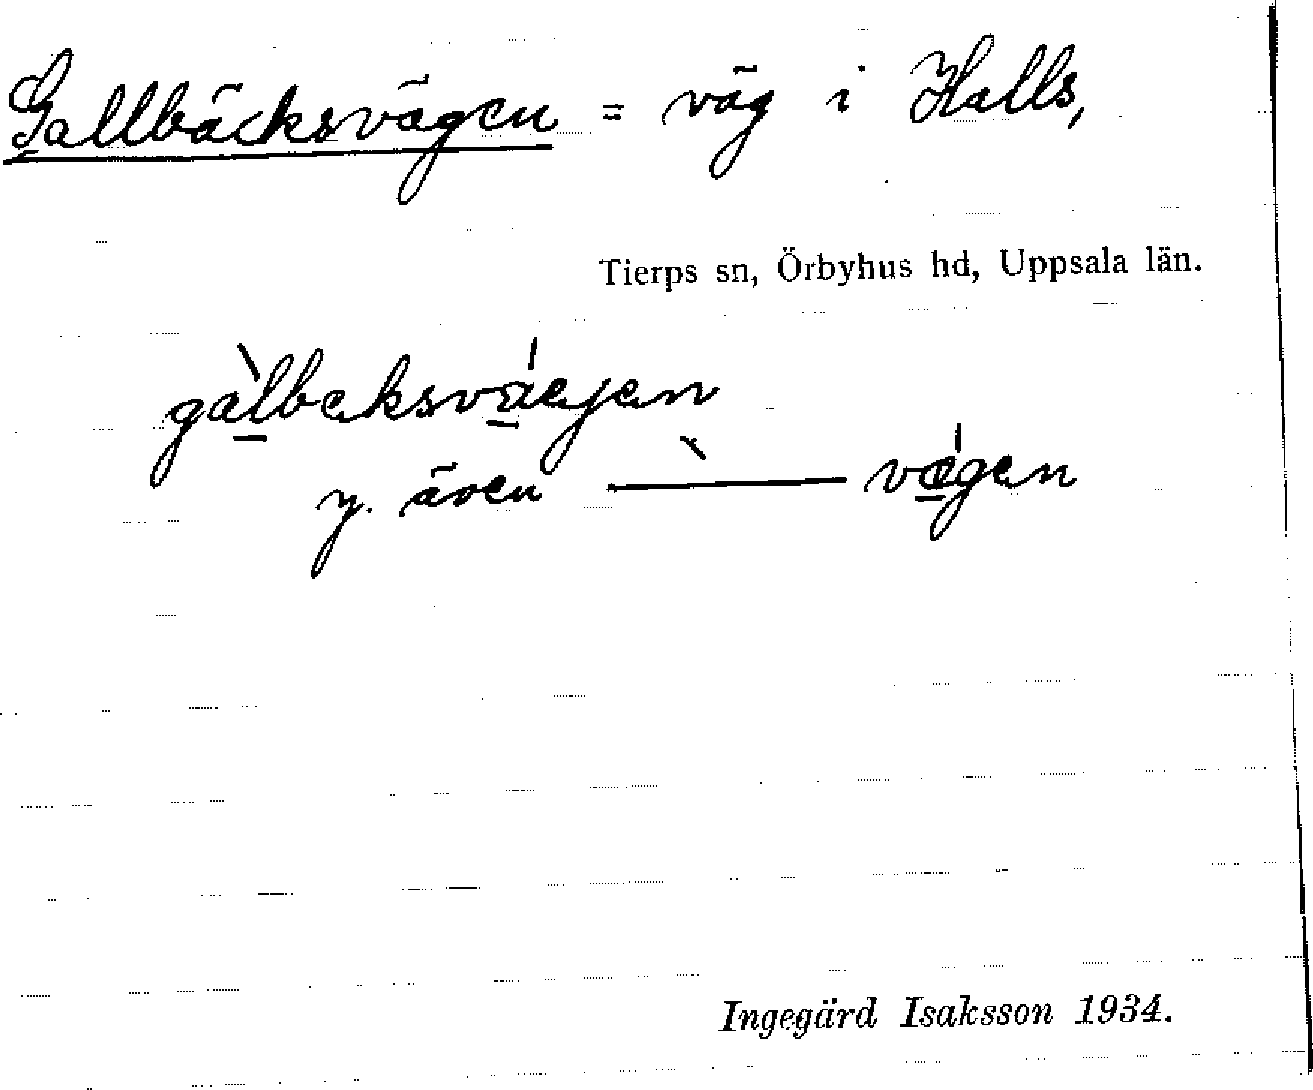 Gallbäcksvägen = väg i Halls,
Tierps sn, Örbyhus hd, Uppsala län.
gàlbeksváejen
y. även ——— vǽgen
Ingegärd Isaksson 1934.